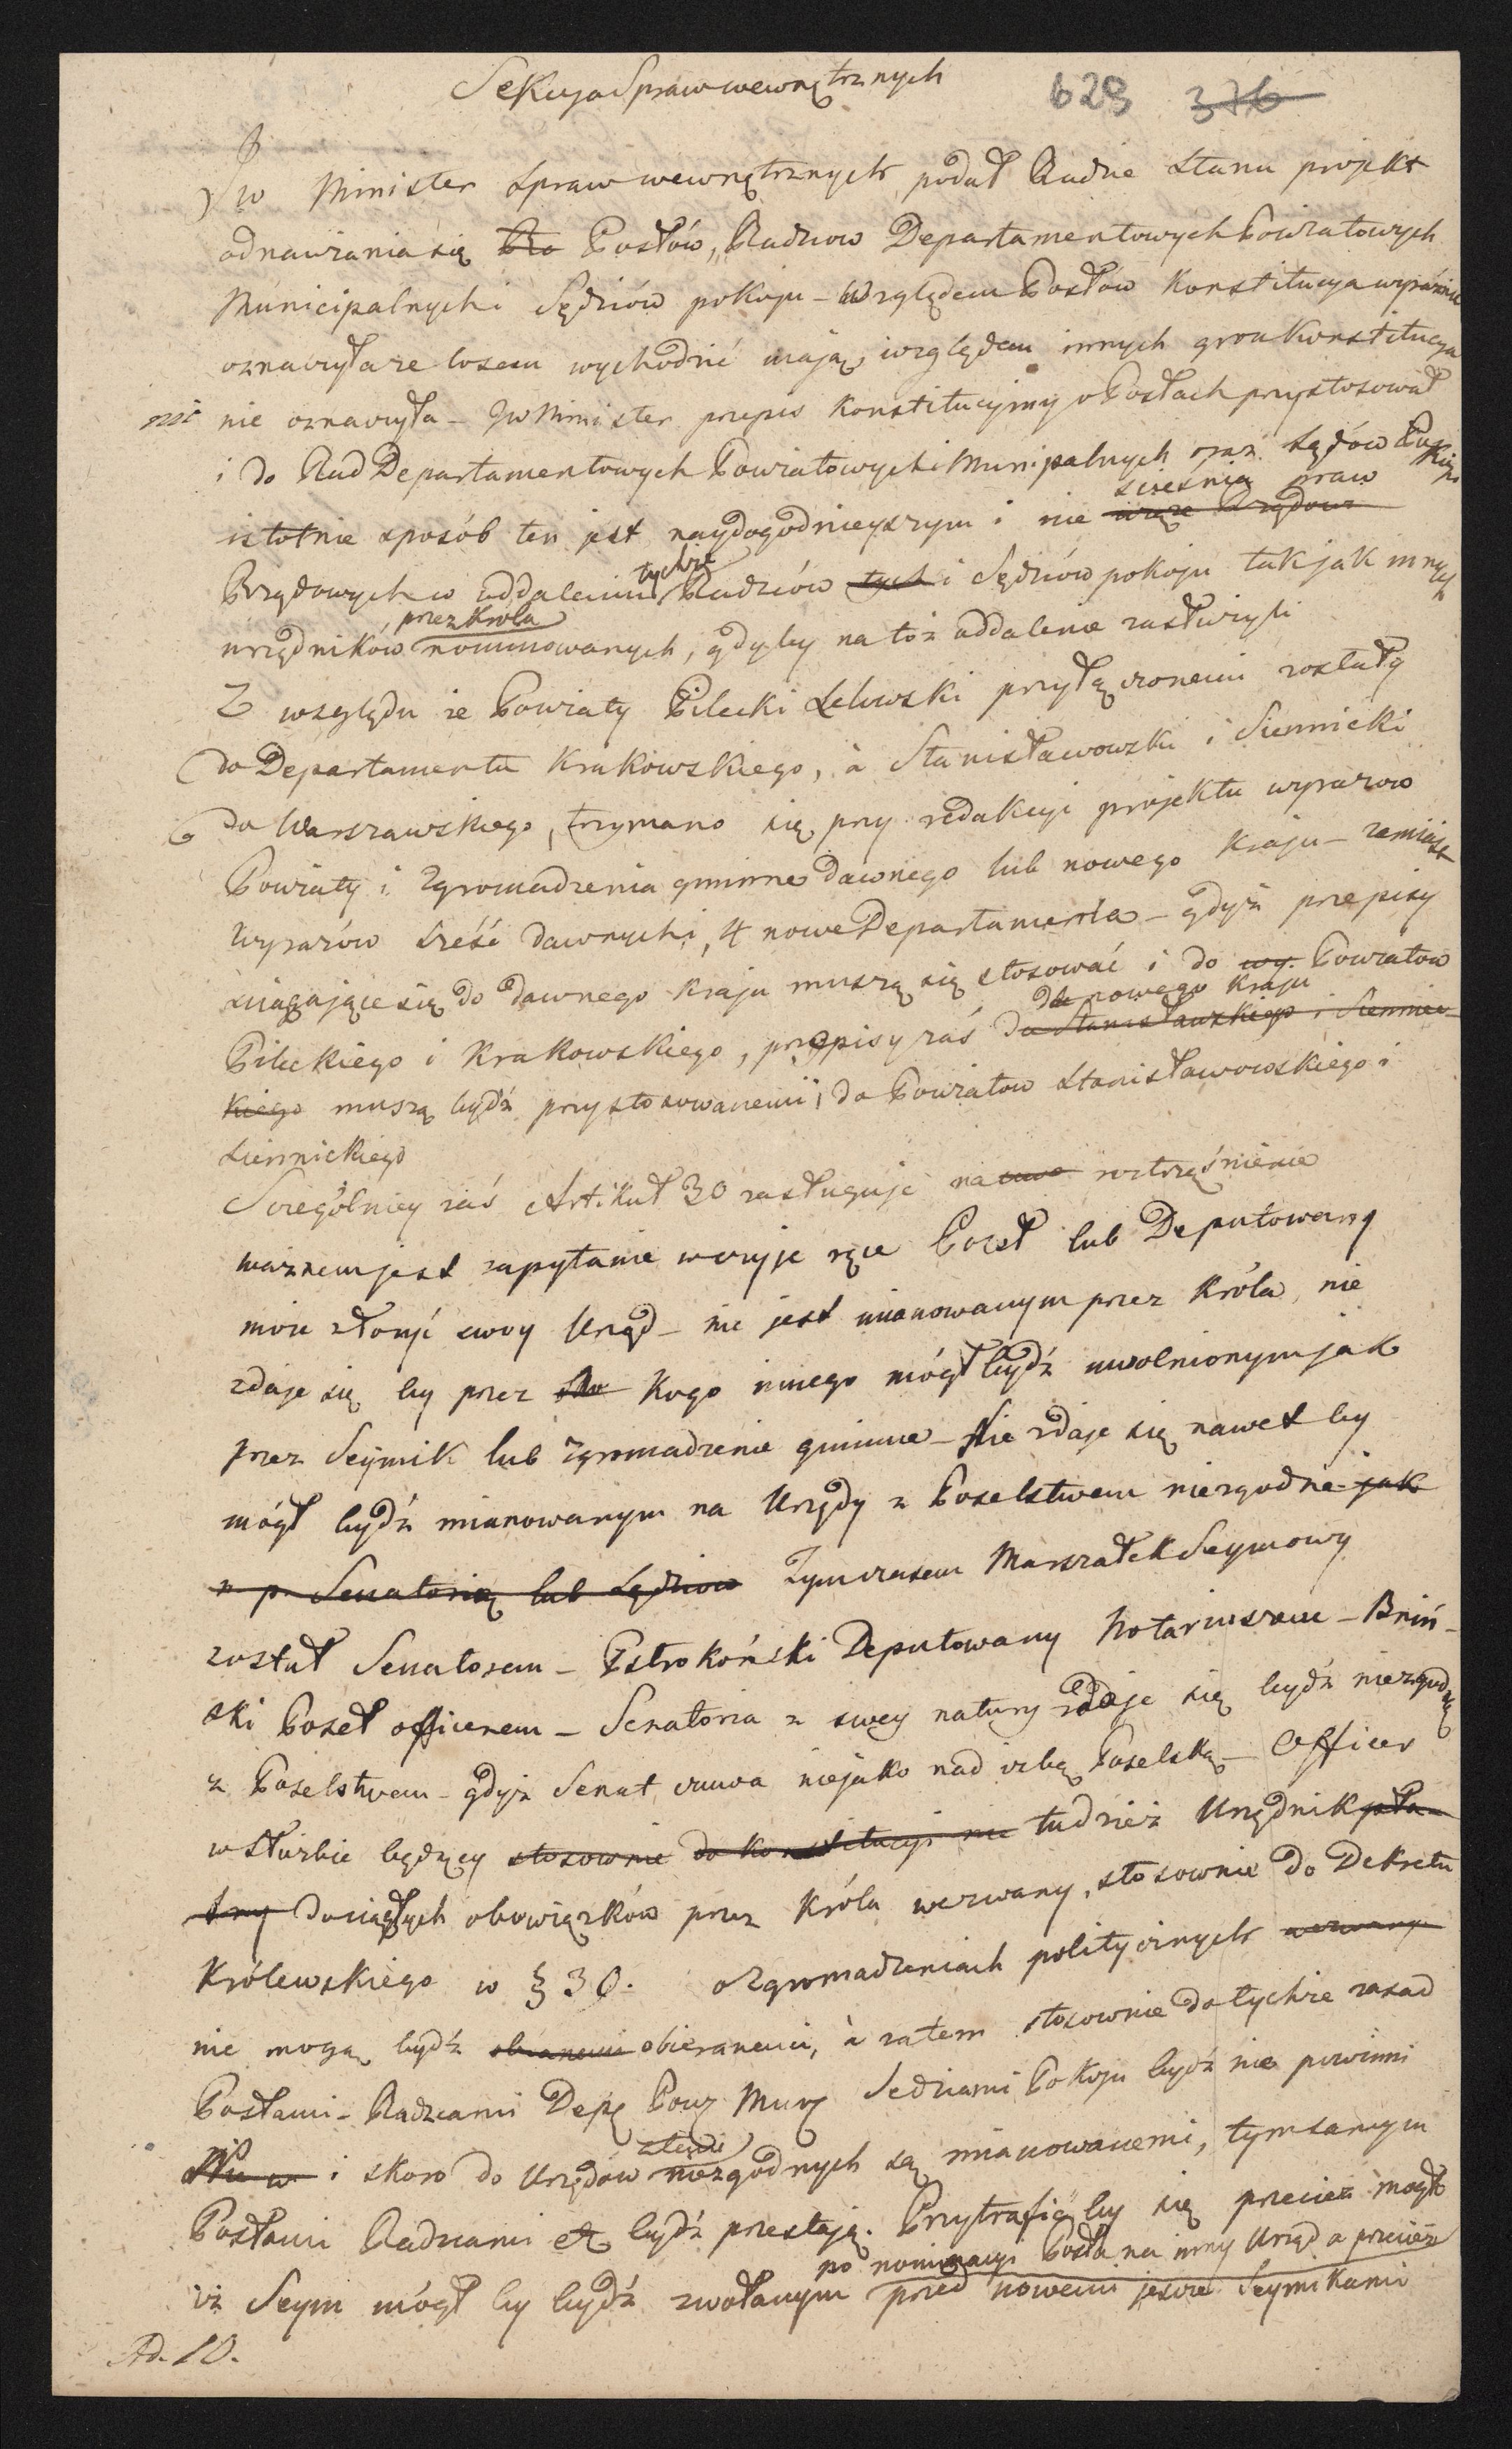 Sekcya Spraw wewnętrznych
629 376
JW Minister Spraw wewnętrznych podał Radzie Stanu projekt
odnawiania się Posłów, Radzcow Departamentowych Powiatowych
Municipalnych i Sędziów pokoju - Względem Posłów Konstitucya wyraźnie
oznaczyła że losem wychodzić mają, względem innych gron Konstitucya
nic nie oznaczyła - JW Minister przepis Konstitucyiny o Posłach przystosował
i do Rad Departamentowych Powiatowych i Municipalnych oraz Sędziów Pokoju
istotnie sposób ten jest naydogodnieyszym i nie ścieśnia praw
Rządowych w oddaleniu tychże Radzców tych i Sędziów pokoju tak jak innych
urzędników przez Króla nominowanych, gdyby na toż oddalenie zasłużyli
Z względu że Powiaty Pilecki Lelowski przyłączonemi zostały
do Departamentu Krakowskiego, à Stanisławowski i Siennicki
do Warszawskiego, trzymano się przy redakcyi projektu wyrazow
Powiaty i Zgromadzenia gminne dawnego lub nowego Kraju - zamiast
wyrazów sześć dawnych i 4 nowe Departamenta - gdyż przepisy
ściągające się do dawnego Kraju muszą się stosować i do wy. Powiatow
Pileckiego i Krakowskiego, przepisy zaś do nowego Kraju do Stanisławskiego i Siennic-
kiego muszą bydź przystosowanemi i do Powiatow Stanisławowskiego i
Siennickiego
Szczególniey zaś Artikuł 30 zasługuje na roztrząśnienie
ważnem jest zapytanie w czyje ręce Poseł lub Deputowany
może złożyć swoy Urząd - nie jest mianowanym przez Króla, nie
zdaje się by przez kogo innego mógł bydź uwolnionym jak
przez Seymik lub Zgromadzenie gminne - Nie zdaje się nawet by
mógł bydź mianowanym na Urzędy z Poselstwem niezgodne jak
n p. Senatorią lub Sędziow Tymczasem Marszałek Seymowy
został Senatorem - Pstrokoński Deputowany Notariuszem - Bniń-
ski Poseł officerem - Senatoria z swey natury zdaje się bydź niezgodną
z Poselstwem - gdyż Senat czuwa niejako nad izbą Poselską - Officer
w służbie będący stosownie do Konstitucyi nie tudzież Urzędnik pła-
tny do ciągłych obowiązków przez Króla wezwany, stosownie do Dekretu
Królewskiego w § 30. o Zgromadzeniach politycznych wezwany
nie mogą bydź obranemi obieranemi, à zatem stosownie do tychże zasad
Posłami - Radzcami Dep. Pow. Mun. Sędziami Pokoju bydź nie powinni
i skoro do Urzędów niezgodnych są mianowanemi, tymsamym
Posłami Radzcami etc bydź przestają. Przytrafić by się przecież mogło
po nominacyi Posła na inny Urząd a przecież
iż Seym mógł by bydź zwołanym przed nowemi jeszcze Seymikami
Ad. 10.